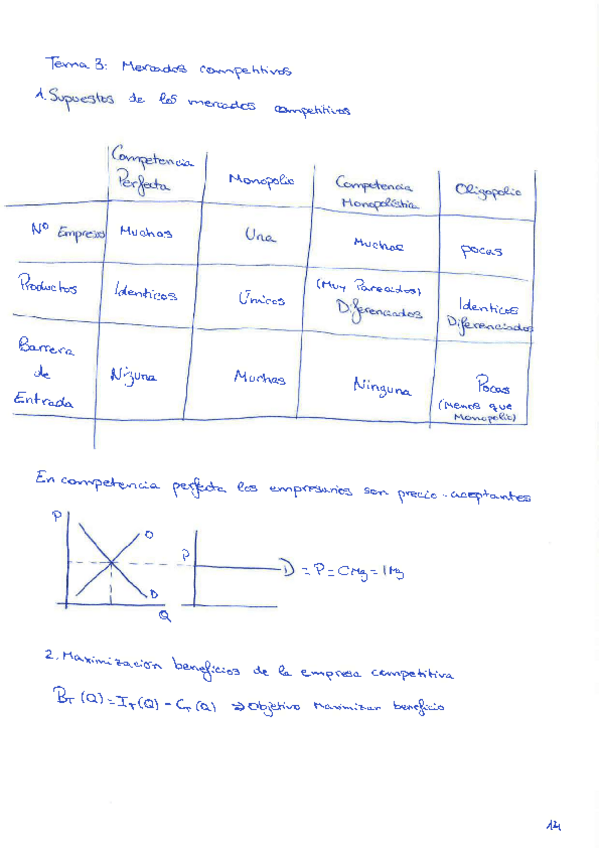 Tema 3: Mercados competitivos
1. Supuestos de los mercados competitivos
Competencia Perfecta | Monopolio | Competencia Monopolistia | Oligopolio
Nº Empresas | Muchas | Una | Muchas | pocas
Productos | Identicos | Únicos | (Muy Parecidos) Diferenciados | Identicos Diferenciados
Barrera de Entrada | Niguna | Muchas | Ninguna | Pocas (Menos que Monopolio)
En competencia perfecta los empresarios son precio-aceptantes
P
O
D
Q
P
D = P = CMg = IMg
2. Maximización beneficios de la empresa competitiva
BT (Q) = IT (Q) - CT (Q) ⇒ Objetivo Maximizar beneficio